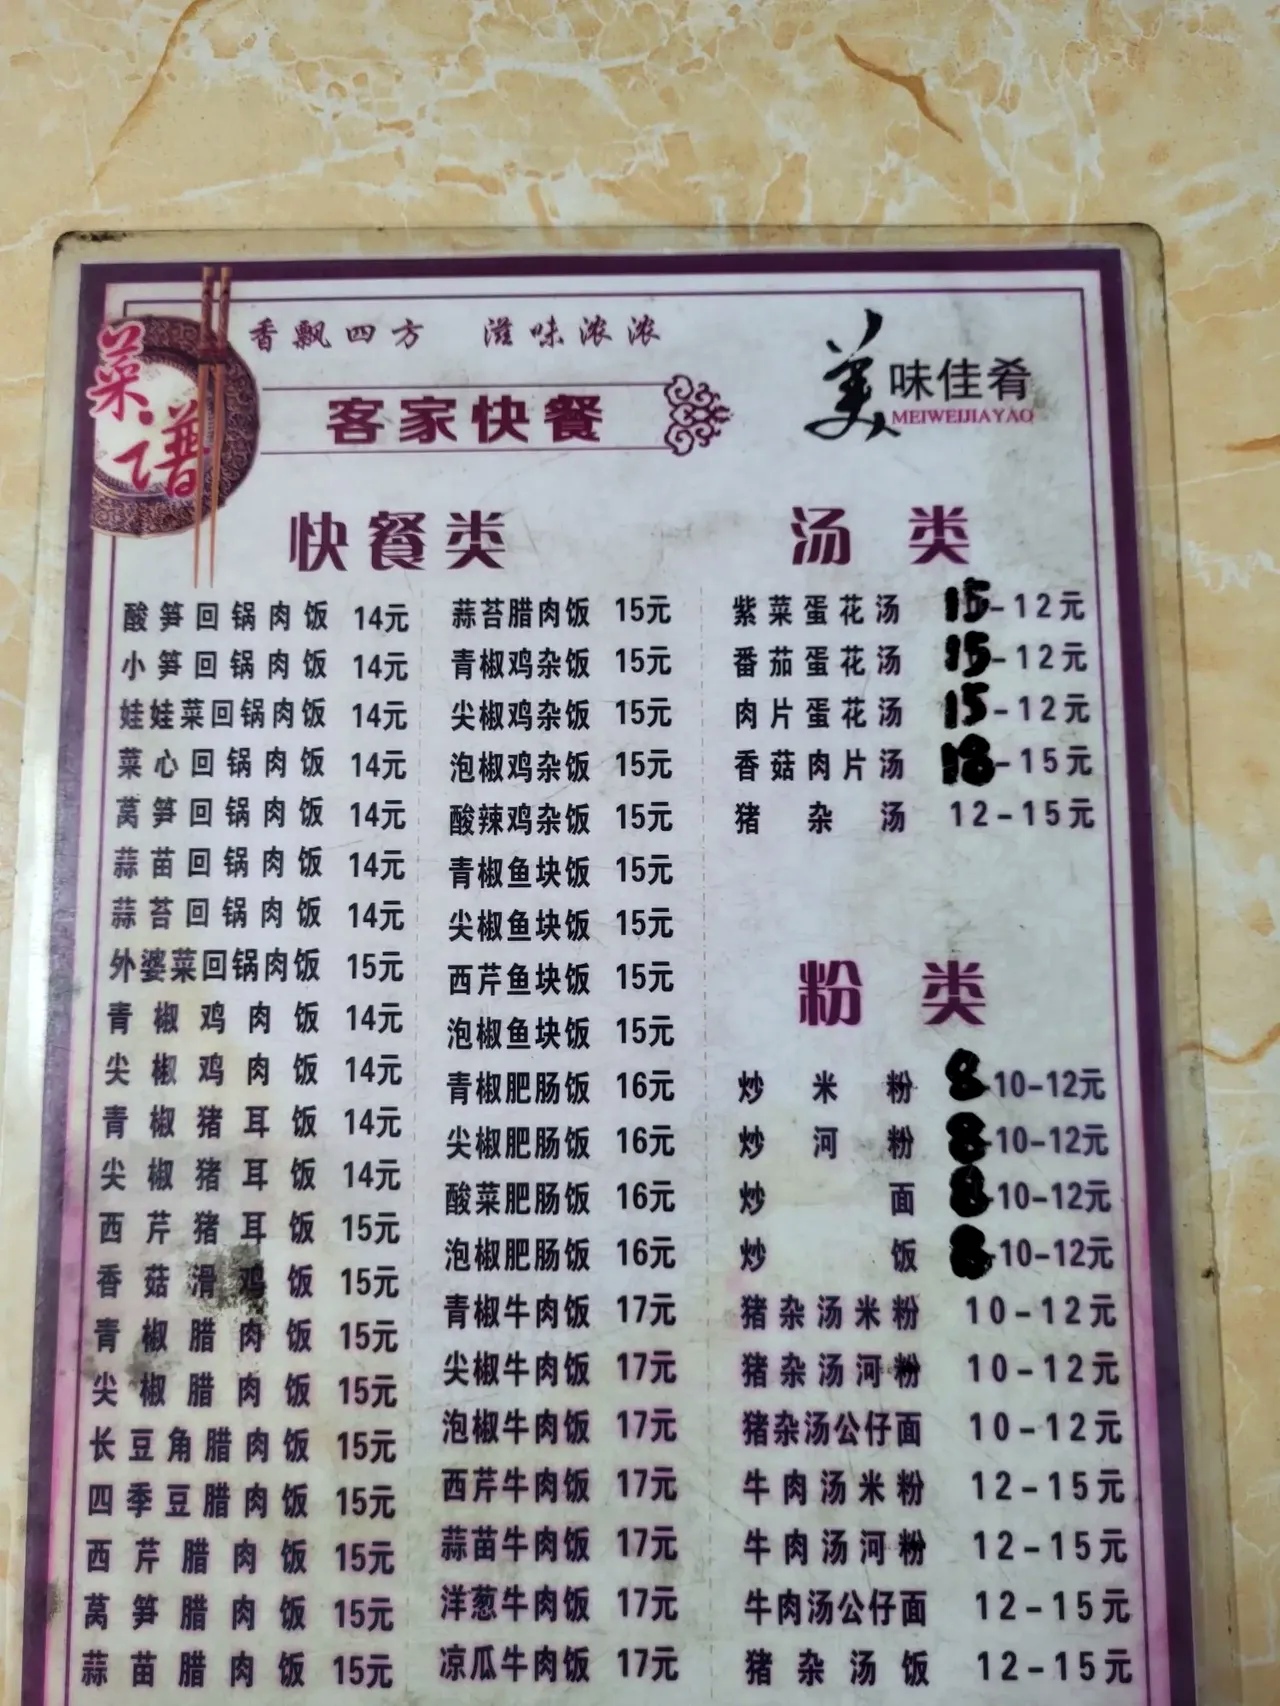 菜谱
香飘四方 滋味浓浓
客家快餐
美味佳肴
MEIWEIJIAYAO
快餐类
酸笋回锅肉饭 14元
小笋回锅肉饭 14元
娃娃菜回锅肉饭 14元
菜心回锅肉饭 14元
莴笋回锅肉饭 14元
蒜苗回锅肉饭 14元
蒜苔回锅肉饭 14元
外婆菜回锅肉饭 15元
青椒鸡肉饭 14元
尖椒鸡肉饭 14元
青椒猪耳饭 14元
尖椒猪耳饭 14元
西芹猪耳饭 15元
香菇滑鸡饭 15元
青椒腊肉饭 15元
尖椒腊肉饭 15元
长豆角腊肉饭 15元
四季豆腊肉饭 15元
西芹腊肉饭 15元
莴笋腊肉饭 15元
蒜苗腊肉饭 15元
蒜苔腊肉饭 15元
青椒鸡杂饭 15元
尖椒鸡杂饭 15元
泡椒鸡杂饭 15元
酸辣鸡杂饭 15元
青椒鱼块饭 15元
尖椒鱼块饭 15元
西芹鱼块饭 15元
泡椒鱼块饭 15元
青椒肥肠饭 16元
尖椒肥肠饭 16元
酸菜肥肠饭 16元
泡椒肥肠饭 16元
青椒牛肉饭 17元
尖椒牛肉饭 17元
泡椒牛肉饭 17元
西芹牛肉饭 17元
蒜苗牛肉饭 17元
洋葱牛肉饭 17元
凉瓜牛肉饭 17元
汤类
紫菜蛋花汤 15-12元
番茄蛋花汤 15-12元
肉片蛋花汤 15-12元
香菇肉片汤 18-15元
猪杂汤 12-15元
粉类
炒米粉 8 10-12元
炒河粉 8 10-12元
炒面 8 10-12元
炒饭 8 10-12元
猪杂汤米粉 10-12元
猪杂汤河粉 10-12元
猪杂汤公仔面 10-12元
牛肉汤米粉 12-15元
牛肉汤河粉 12-15元
牛肉汤公仔面 12-15元
猪杂汤饭 12-15元